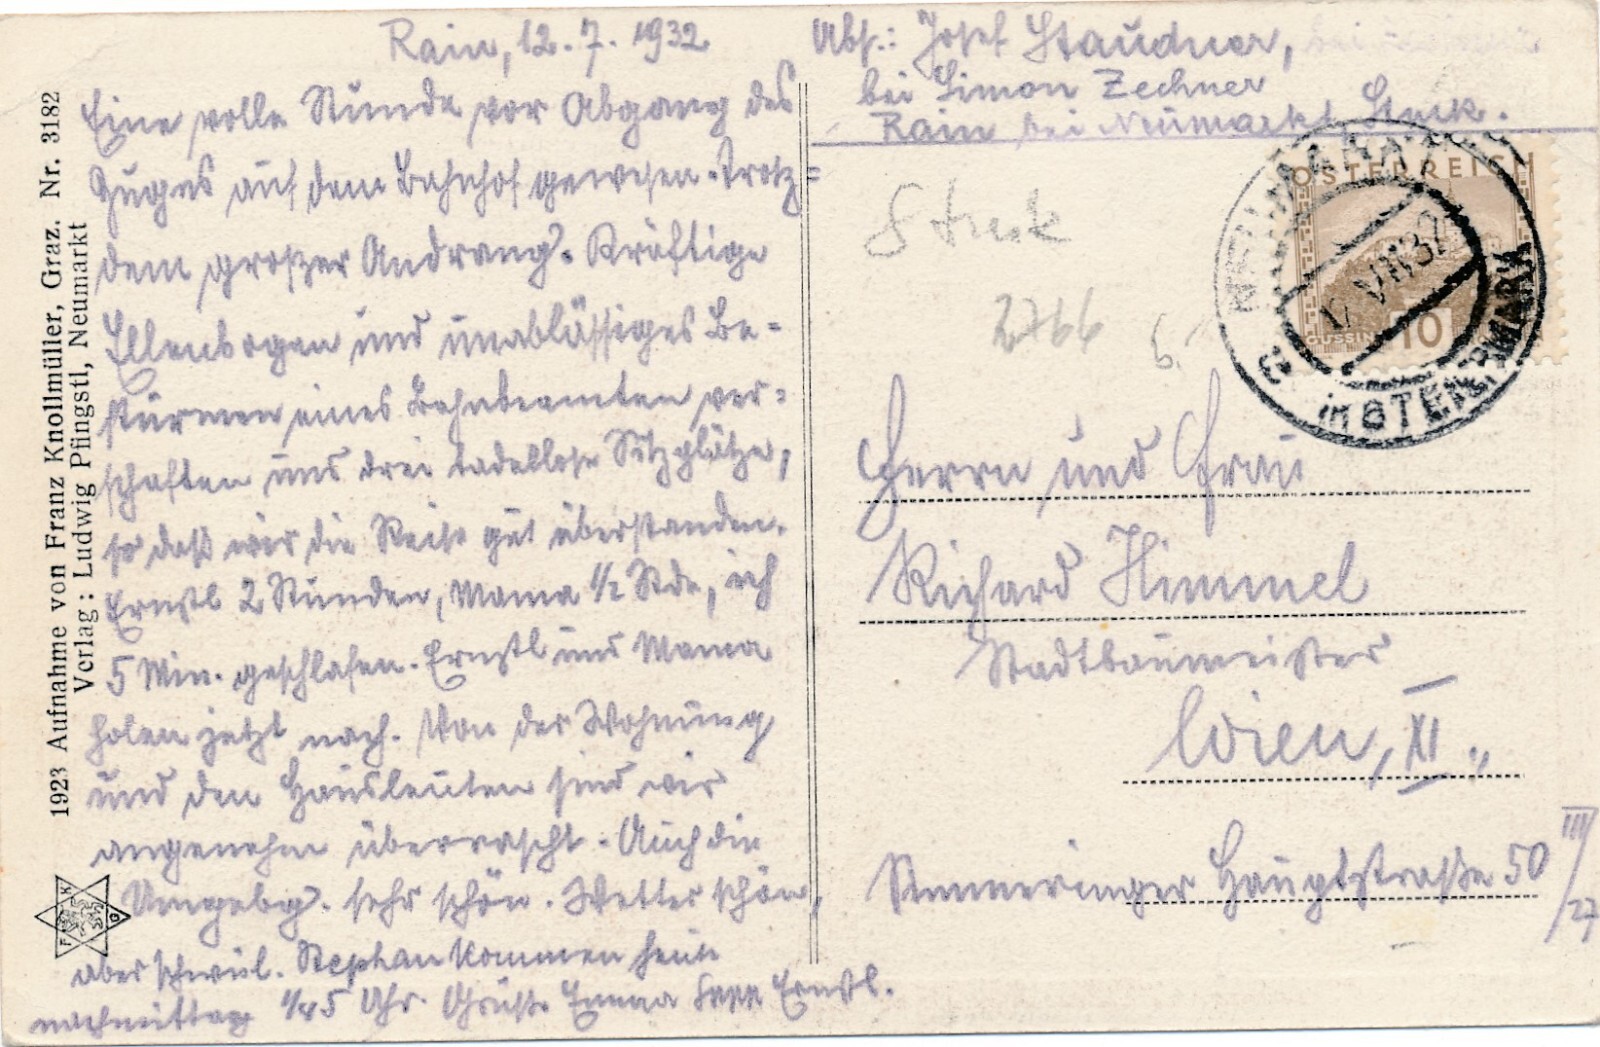 Rain, 12.7.1932
Eine volle Stunde vor Abgang des
Zuges auf dem Bahnhof gewesen. Trotz=
dem großer Andrang. Kräftige
Ellenbogen und unablässiges Be=
stürmen eines Bahnbeamten ver=
schafften uns drei tadellose Sitzplätze,
so daß wir die Reise gut überstanden.
Ernstl 2 Stunden, Mama 1/2 Stde, ich
5 Min. geschlafen. Ernstl und Mama
holen jetzt nach. Von der Wohnung
und den Hausleuten sind wir
angenehm überrascht. Auch die
Umgebg. sehr schön. Wetter schön,
aber schwül. Stephan kommen heute
nachmittag 1/45 Uhr. Grüße Emma Sepp Ernstl.
Abs.: Josef Staudner,
bei Simon Zechner
Rain bei Neumarkt, Stmk.
Stmk
2766
6.
ÖSTERREICH
GÜSSING
10
NEUMARKT
in STEIERMARK
VII 32
Herrn und Frau
Richard Himmel
Stadtbaumeister
Wien, XI.,
Simmeringer Hauptstraße 50 III/27
1923 Aufnahme von Franz Knollmüller, Graz. Nr. 3182
Verlag: Ludwig Pfingstl, Neumarkt
F K G